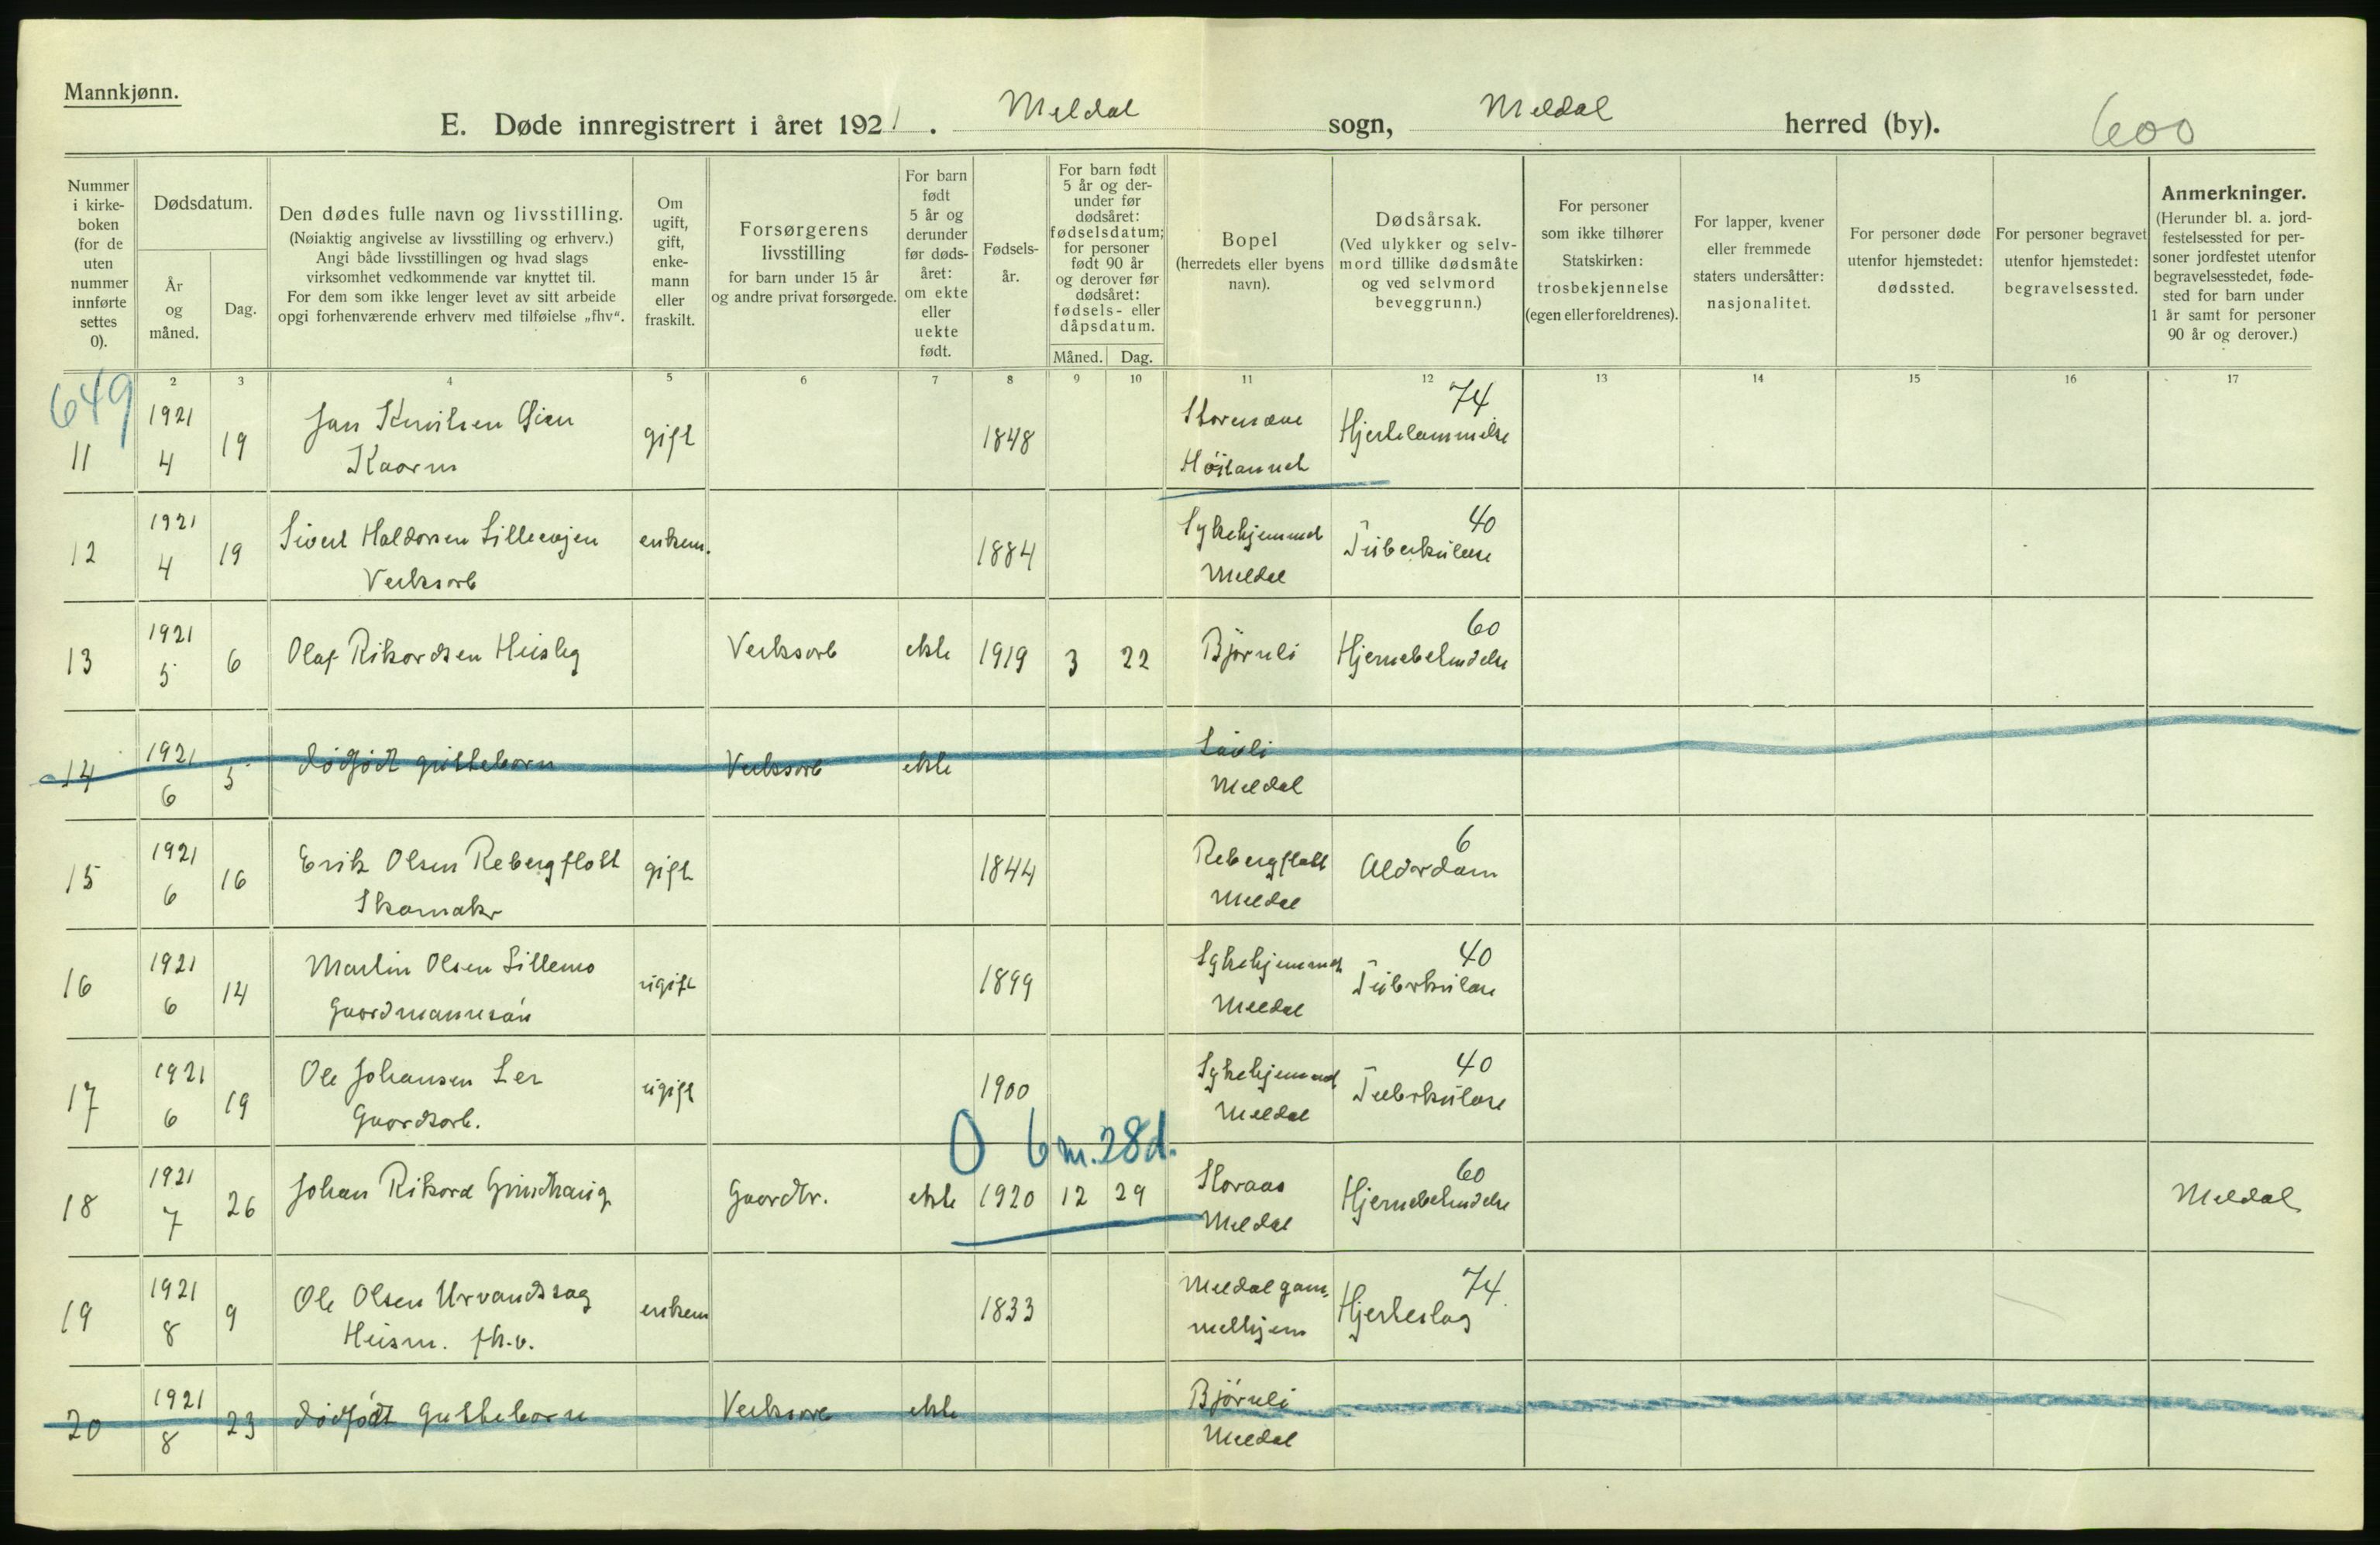 Mannkjønn.
E. Døde innregistrert i året 1921. Meldal sogn, Meldal herred (by). 600
Nummer i kirke-boken (for de uten nummer innførte settes 0).
Dødsdatum.
År og måned.
Dag.
Den dødes fulle navn og livsstilling.
(Nøiaktig angivelse av livsstilling og erhverv.)
Angi både livsstillingen og hvad slags
virksomhet vedkommende var knyttet til.
For dem som ikke lenger levet av sitt arbeide
opgi forhenværende erhverv med tilføielse „fhv“.
Om ugift, gift, enke-mann eller fraskilt.
Forsørgerens
livsstilling
for barn under 15 år
og andre privat forsørgede.
For barn født 5 år og derunder før døds-året: om ekte eller uekte født.
Fødsels-år.
For barn født 5 år og der-under før dødsåret: fødselsdatum; for personer født 90 år og derover før dødsåret: fødsels- eller dåpsdatum.
Måned. Dag.
Bopel
(herredets eller byens navn).
Dødsårsak.
(Ved ulykker og selv-mord tillike dødsmåte og ved selvmord beveggrunn.)
For personer som ikke tilhører Statskirken: trosbekjennelse (egen eller foreldrenes).
For lapper, kvener eller fremmede staters undersåtter: nasjonalitet.
For personer døde utenfor hjemstedet: dødssted.
For personer begravet utenfor hjemstedet: begravelsessted.
Anmerkninger.
(Herunder bl. a. jord-festelsessted for per-soner jordfestet utenfor begravelsesstedet, føde-sted for barn under 1 år samt for personer 90 år og derover.)
2 3 4 5 6 7 8 9 10 11 12 13 14 15 16 17
649
11 1921 4 19 gift 1848 74
12 1921 4 19 Sivert Haldorsen enkem. 1884 Sykehjemmet Meldal 40 Tuberkulose
Verksarb
13 1921 5 6 Olaf Rikardsen Verksarb ekte 1919 3 22 Bjørnli 60 Hjernebetendelse
14 1921 6 5 dødfødt guttebarn Verksarb ekte Løvli Meldal
15 1921 6 16 Erik Olsen Rebergflott gift 1844 Rebergflott Meldal 6 Alderdom
Skomaker
16 1921 6 14 Martin Olsen Lillemo ugift 1899 Sykehjemmet Meldal 40 Tuberkulose
17 1921 6 19 Ole Johansen Ler ugift 1900 Sykehjemmet Meldal 40 Tuberkulose
Gaardsarb.
0 6 m. 28 d.
18 1921 7 26 Johan Rikard Grindhaug Gaardbr. ekte 1920 12 29 Storaas Meldal 60 Hjernebetendelse Meldal
19 1921 8 9 Ole Olsen Urvandsaag enkem 1833 Meldal gam. 74 Hjerteslag
Husm. fh.v. melhjem
20 1921 8 23 dødfødt guttebarn Verksarb ekte Bjørnli Meldal